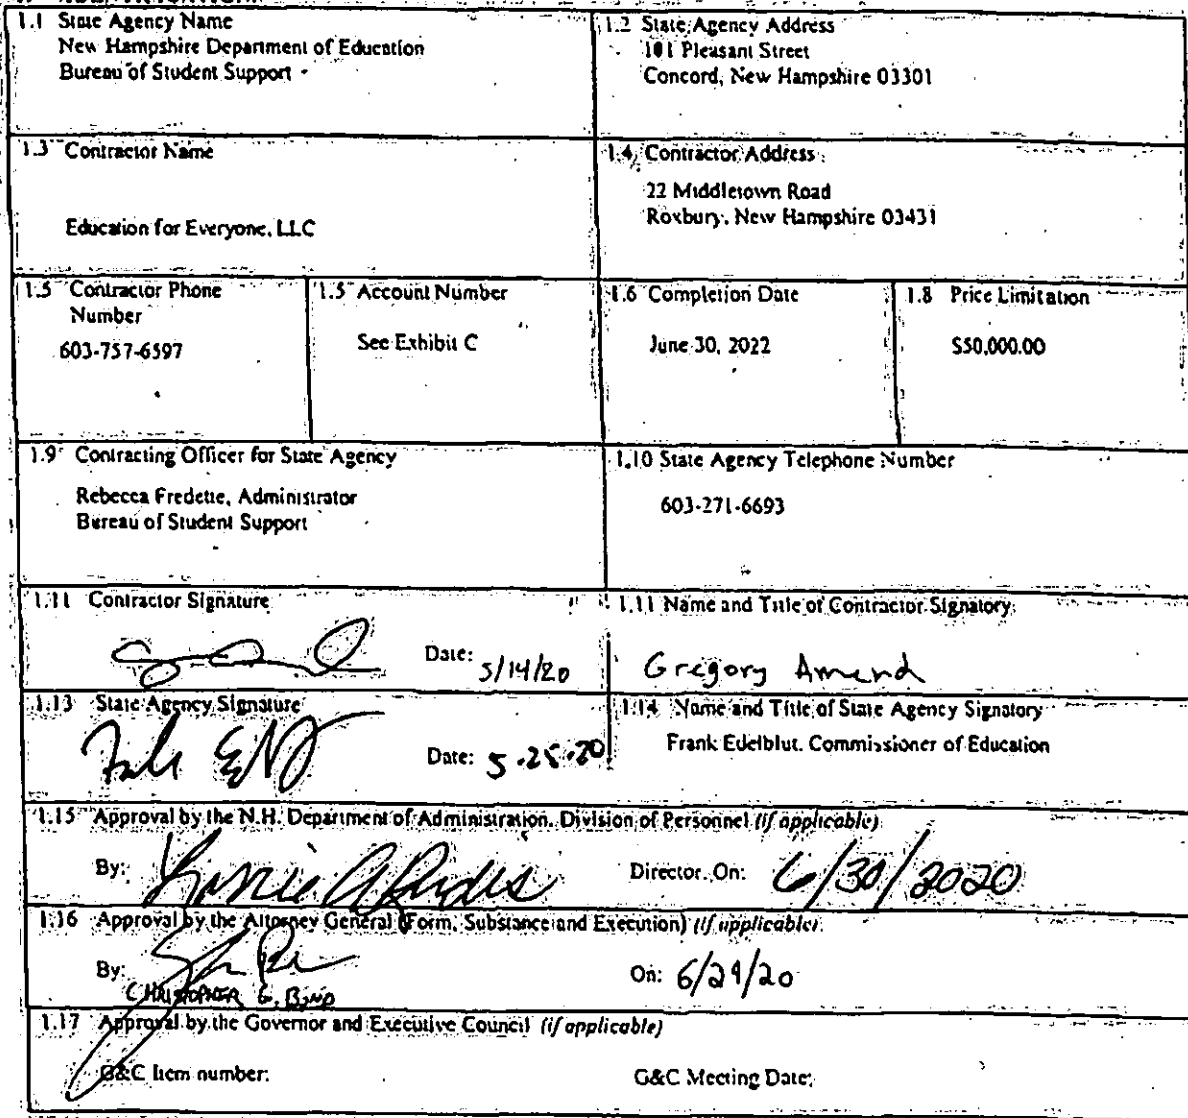 1.1 State Agency Name
New Hampshire Department of Education
Bureau of Student Support
1.2 State Agency Address
101 Pleasant Street
Concord, New Hampshire 03301
1.3 Contractor Name
Education for Everyone, LLC
1.4 Contractor Address
22 Middletown Road
Roxbury, New Hampshire 03431
1.5 Contractor Phone
Number
603-757-6597
1.5 Account Number
See Exhibit C
1.6 Completion Date
June 30, 2022
1.8 Price Limitation
$50,000.00
1.9 Contracting Officer for State Agency
Rebecca Fredette, Administrator
Bureau of Student Support
1.10 State Agency Telephone Number
603-271-6693
1.11 Contractor Signature
Date: 5/14/20
1.11 Name and Title of Contractor Signatory
Gregory Amend
1.13 State Agency Signature
Date: 5.25.20
1.14 Name and Title of State Agency Signatory
Frank Edelblut, Commissioner of Education
1.15 Approval by the N.H. Department of Administration, Division of Personnel (if applicable)
By: Director, On: 6/30/2020
1.16 Approval by the Attorney General (Form, Substance and Execution) (if applicable)
By: On: 6/29/20
CHRISTOPHER G. BOND
1.17 Approval by the Governor and Executive Council (if applicable)
G&C Item number: G&C Meeting Date: